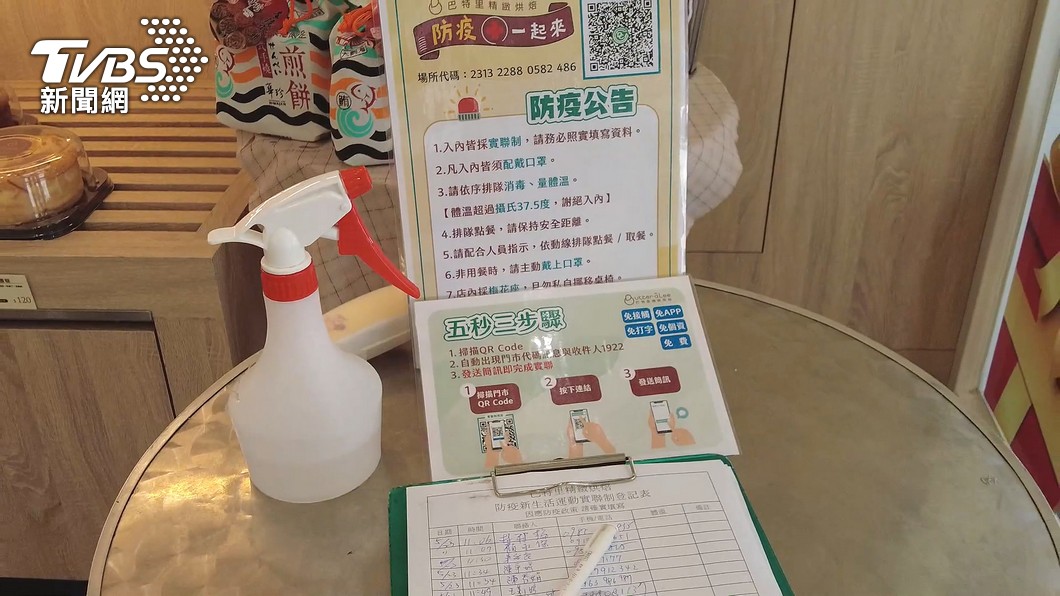 TVBS
新聞網
巴特里精緻烘焙
防疫 一起來
場所代碼：2313 2288 0582 486
防疫公告
1.入內皆採實聯制，請務必照實填寫資料。
2.凡入內皆須配戴口罩。
3.請依序排隊消毒、量體溫。
【體溫超過攝氏37.5度，謝絕入內】
4.排隊點餐，請保持安全距離。
5.請配合人員指示，依動線排隊點餐／取餐。
6.非用餐時，請主動戴上口罩。
7.店內採梅花座，且勿私自挪移桌椅。
煎餅
$120
五秒三步驟
免接觸 免APP
免打字 免個資
免費
1.掃描QR Code
2.自動出現門市代碼訊息與收件人1922
3.發送簡訊即完成實聯
1 掃描門市 QR Code
2 按下連結
3 發送簡訊
巴特里精緻烘焙
防疫新生活運動實聯制登記表
因應防疫政策 請確實填寫
日期 時間 聯絡人 手機/電話 體溫 備註
5/23 11:06
11:07
5/23 11:34
5/23 11:34
11:49